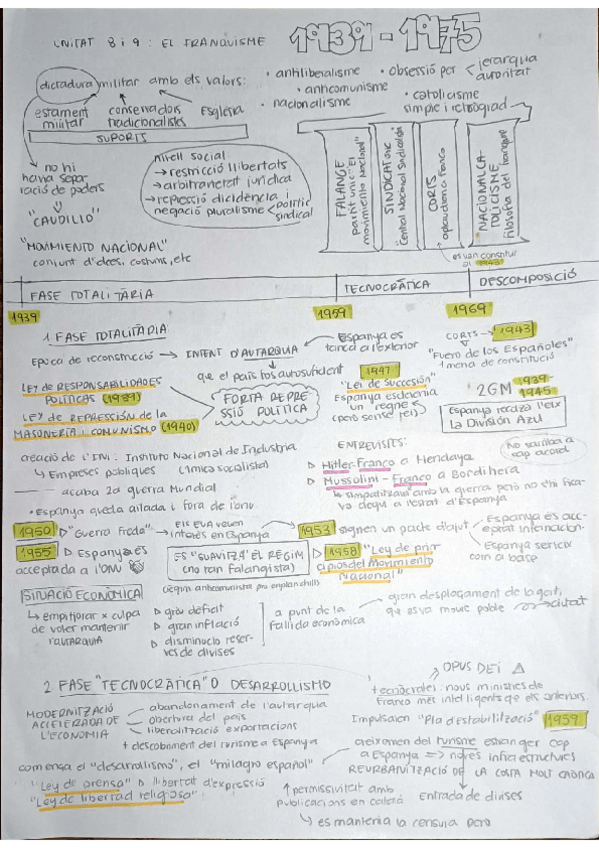 UNITAT 8 i 9: EL FRANQUISME
1939 - 1975
dictadura militar amb els valors:
· antiliberalisme
· anticomunisme
· nacionalisme
· obsessió per
jerarquia
autoritat
· catolicisme
simple i retrògrad
estament
militar
conservadors
tradicionalistes
Església
SUPORTS
no hi
havia sepa-
ració de poders
"CAUDILLO"
nivell social
→ restricció llibertats
→ arbitrarietat jurídica
→ repressió dicidència i
negació pluralisme
polític
sindical
FALANGE
partit únic "El
movimiento Nacional"
SINDICAT únic
"Central Nacional Sindicalista"
CORTS
NACIONALCA-
TOLICISME
filosofia del franquisme
es van constituir
el 1943
"MOVIMIENTO NACIONAL"
conjunt d'idees, costums, etc
FASE TOTALITÀRIA
TECNOCRÀTICA
DESCOMPOSICIÓ
1939
1959
1969
1. FASE TOTALITÀRIA
Època de reconstrucció → INTENT D'AUTARQUIA
Espanya es
tanca a l'exterior
que el país fos autosuficient
CORTS → 1943
"Fuero de los Españoles"
1 mena de constitució
LEY DE RESPONSABILIDADES
POLÍTICAS (1939)
LEY DE REPRESSIÓN de la
MASONERÍA i COMUNISMO (1940)
FORTA REPRE-
SSIÓ POLÍTICA
1947
"Lei de Sucesión"
Espanya esdevenia
un regne
(però sense rei)
2GM 1939-
1945
Espanya recolza l'eix
La División Azul
creació de l'INI: Instituto Nacional de Industria
↳ Empreses públiques (única socialista)
acaba 2a guerra Mundial
· Espanya queda aïllada i fora de l'ONU
ENTREVISTES:
▷ Hitler-Franco a Hendaya
▷ Mussolini - Franco a Bordihera
↳ simpatitzava amb la guerra però no s'hi fica-
va degut a l'estat d'Espanya
No s'arriba a
cap acord
1950 ▷ "Guerra Freda"
Els EUA veuen
interès en Espanya
1953 signen un pacte d'ajut
Espanya és acc-
eptat internacion.
Espanya serviria
com a base
1955 ▷ Espanya és
acceptada a l'ONU
ES "SUAVITZA" EL RÈGIM
(no tan falangista)
(règim anticomunista pro en plan chill)
▷ 1958 "Ley de prin-
cipios del Movimiento
Nacional"
SITUACIÓ ECONÒMICA
↳ empitjorar x culpa
de voler mantenir
l'AUTARQUIA
▷ gran dèficit
▷ gran inflació
▷ disminució reser-
ves de divises
a punt de la
fallida econòmica
gran desplaçament de la gent,
que es va moure poble → ciutat
2 FASE "TECNOCRÀTICA" O DESARROLLISMO
OPUS DEI
tecnòcrates: nous ministres de
Franco més intel·ligents que els anteriors.
Impulsaren "Pla d'estabilització" 1959
MODERNITZACIÓ
ACCELERADA DE
L'ECONOMIA
abandonament de l'autarquia
obertura del país
liberalització exportacions
+ descobriment del turisme a Espanya
comença el "desarrollismo", el "milagro español"
creixement del turisme estranger cap
a Espanya => noves infraestructures
REURBANITZACIÓ DE LA COSTA MOLT CAÒTICA
entrada de divises
"Ley de prensa" ▷ llibertat d'expressió
"Ley de libertad religiosa"
↑ permissivitat amb
publicacions en català
↳ es mantenia la censura però